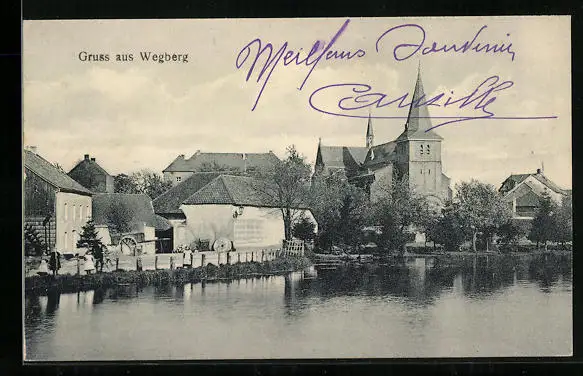 Gruss aus Wegberg
Meilleurs Souvenirs
Camille